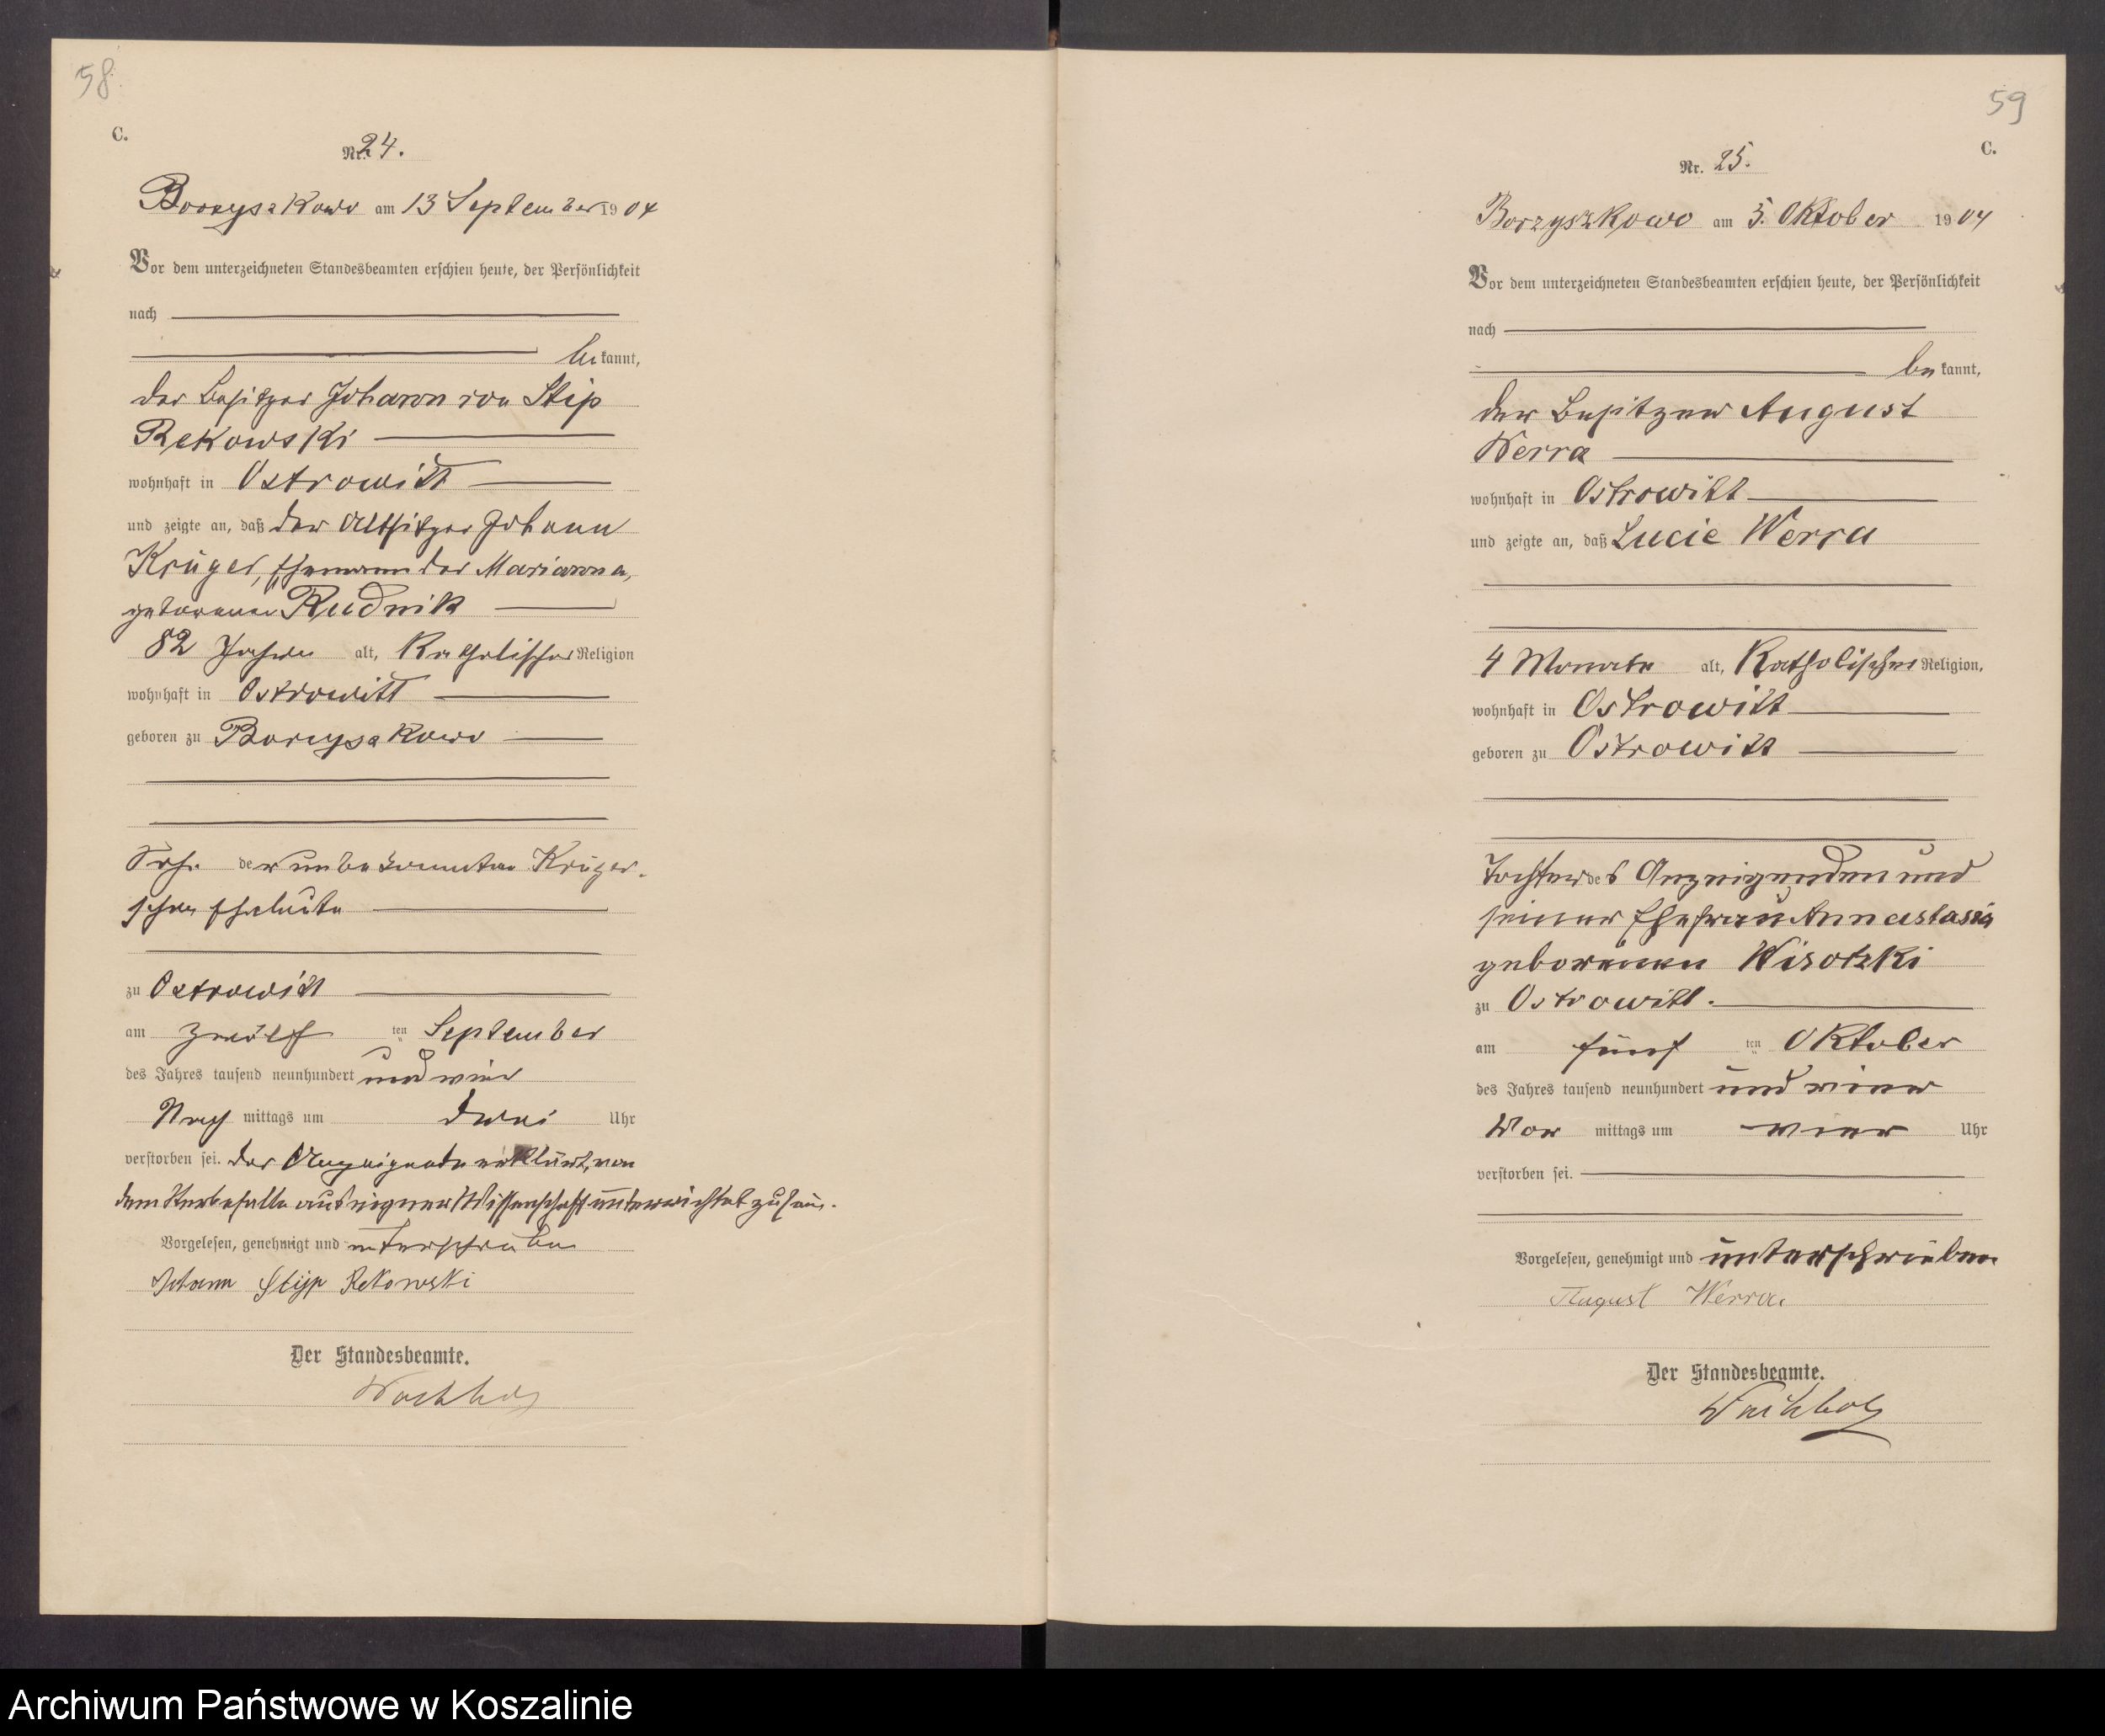 58.
C.
Nr. 24.
Borzyszkowo am 13 September 1904
Vor dem unterzeichneten Standesbeamten erschien heute, der Persönlichkeit
nach
bekannt,
der Besitzer Johann von Stip
Rekowski
wohnhaft in Ostrowitt
und zeigte an, daß der Altsitzer Johann
Krüger, Ehemann der Marianna,
geborenen Rudnik
82 Jahre alt, Katholischer Religion
wohnhaft in Ostrowitt
geboren zu Borzyszkowo
Sohn der unbekannten Krüger-
schen Eheleute
zu Ostrowitt
am zwölf ten September
des Jahres tausend neunhundert und vier
Nach mittags um drei Uhr
verstorben sei. Der Anzeigende erklärt, von
dem Sterbefalle aus eigner Wissenschaft unterrichtet zu sein.
Vorgelesen, genehmigt und unterschrieben
Johann Stip Rekowski
Der Standesbeamte.
Wachholz
59
C.
Nr. 25.
Borzyszkowo am 5. Oktober 1904
Vor dem unterzeichneten Standesbeamten erschien heute, der Persönlichkeit
nach
bekannt,
der Besitzer August
Werra
wohnhaft in Ostrowitt
und zeigte an, daß Lucie Werra
4 Monate alt, Katholischer Religion,
wohnhaft in Ostrowitt
geboren zu Ostrowitt
Tochter des Anzeigenden und
seiner Ehefrau Annastasia
geborenen Wisotzki
zu Ostrowitt.
am fünf ten Oktober
des Jahres tausend neunhundert und vier
Vor mittags um vier Uhr
verstorben sei.
Vorgelesen, genehmigt und unterschrieben
August Werra.
Der Standesbeamte.
Wachholz
Archiwum Państwowe w Koszalinie